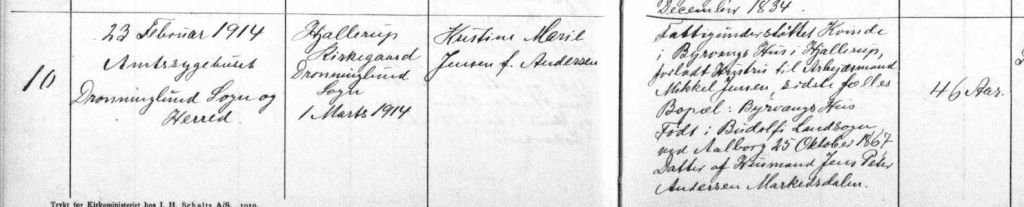 10
23 Februar 1914
Amtssygehuset
Dronninglund Sogn og
Herred.
Hjallerup
Kirkegaard
Dronninglund
Sogn
1 Marts 1914
Marie
Jensen f. Andersen
December 1834.
Fattigunderstøttet Kvinde
i Byrvangs Hus i Hjallerup,
forladt Hustru til Arbejdsmand
Mikkel Jensen, sidste fælles
Bopæl: Byrvangs Hus
Født i Budolfi Landsogn
ved Aalborg 25 Oktober 1867
Datter af Husmand Jens Peter
Andersen Markedsdalen.
46 Aar.
Trykt for Kirkeministeriet hos J. H. Schultz A/S. 1910.